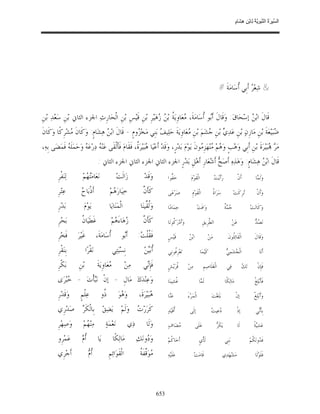 السِّيرَةُ النَّبَوِيَّةُ لِابْنِ هِشَامٍ
& شِعْرُ أَبِي أُسَامَةَ #
قَالَ ابْنُ إِسْحَاقَ: وَقَالَ أَبُو أُسَامَةَ، مُعَاوِيَةُ بْنُ زُهَيْرِ بْنِ قَيْسِ بْنِ الْحَارِثِ الجزء الثاني بْنِ سَعْدِ بْنِ
ضُبَيْعَةَ بْنِ مَازِنِ بْنِ عَدِيِّ بْنِ جُشَمَ بْنِ مُعَاوِيَةَ حَلِيفُ بَنِي مَخْزُومٍ - قَالَ ابْنُ هِشَامٍ: وَكَانَ مُشْرِكًا وَكَانَ
مَرَّ هُبَيْرَةُ بْنُ أَبِي وَهْبٍ وَهُمْ مُنْهَزِمُونَ يَوْمَ بَدْرٍ، وَقَدْ أَعْيَا هُبَيْرَةُ، فَقَامَ فَأَلْقَى عَنْهُ دِرْعَهُ وَحَمَلَهُ فَمَضَى بِهِ،
قَالَ ابْنُ هِشَامٍ: وَهَذِهِ أَصَحُّ أَشْعَارِ أَهْلِ بَدْرٍ الجزء الثاني الجزء الثاني الجزء الثاني
وَلَمَّا أَنْ رَأَيْتُ الْقَوْمَ خَفُّوا وَقَدْ زَالَتْ نَعَامَتُهُمْ لِنَفْرِ
وَأَنْ تُرِكَتْ سَرَاةُ الْقَوْمِ صَرْعَى كَأَنَّ خِيَارَهُمْ أَذْبَاحُ عِتْرِ
وَكَانَتْ جُمَّةٌ وَافَتْ حِمَامًا وَلُقِّينَا الْمَنَايَا يَوْمَ بَدْرِ
نَصُدُّ عَنْ الطَّرِيقِ وَأَدْرَكُونَا كَأَنَّ زُهَاءَهُمْ غَطَيَانُ بَحْرِ
وَقَالَ الْقَائِلُونَ مَنْ ابْنُ قَيْسٍ فَقُلْتُ أَبُو أُسَامَةَ، غَيْرَ فَخْرِ
أَنَا الْجُشَمِيُّ كَيْمَا تَعْرِفُونِي أُبَيِّنُ نِسْبَتِي نَقْرًا بِنَقْرِ
فَإِنْ تَكُ فِي الْغَلَاصِمِ مِنْ قُرَيْشٍ فَإِنِّي مِنْ مُعَاوِيَةَ بْنِ بَكْرِ
فَأَبْلِغْ مَالِكًا لَمَّا غُشِينَا وَعِنْدَكَ مَالِ - إنْ نَبَّأْتَ - خُبْرِي
وَأَبْلِغْ إنْ بَلَغْتَ الْمَرْءَ عَنَّا هُبَيْرَةَ، وَهُوَ ذُو عِلْمٍ وَقَدْرِ
بِأَنِّي إذْ دُعِيتُ إلَى أُفَيْدٍ كَرَرْتُ وَلَمْ يَضِقْ بِالْكَرِّ صَدْرِي
عَشِيَّةَ لَا يَكُرُّ عَلَى مُضَافٍ وَلَا ذِي نَعْمَةٍ مِنْهُمْ وَصِهْرِ
فَدُونَكُمْ بَنِي لَأْيٍ أَخَاكُمْ وَدُونَكِ مَالِكًا يَا أُمَّ عَمْرِو
فَلَوْلَا مَشْهَدِي قَامَتْ عَلَيْهِ مُوَقَّفَةُ الْقَوَائِمِ أُمُّ أَجْرِي
653